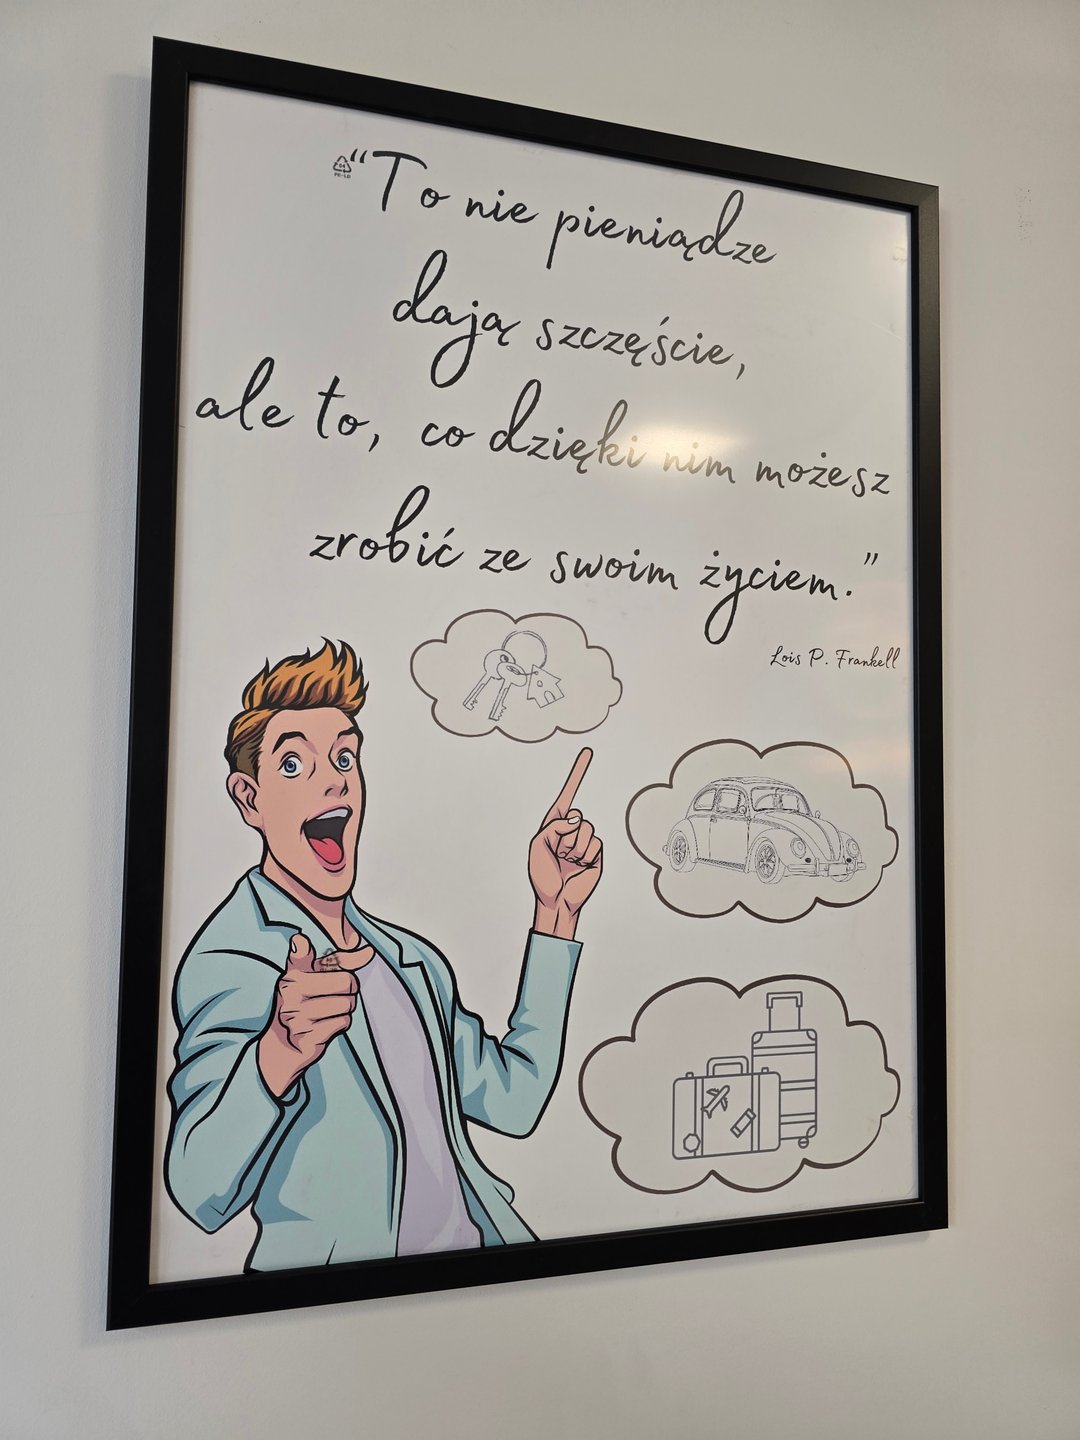 “To nie pieniądze
dają szczęście,
ale to, co dzięki nim możesz
zrobić ze swoim życiem.”
Lois P. Frankell